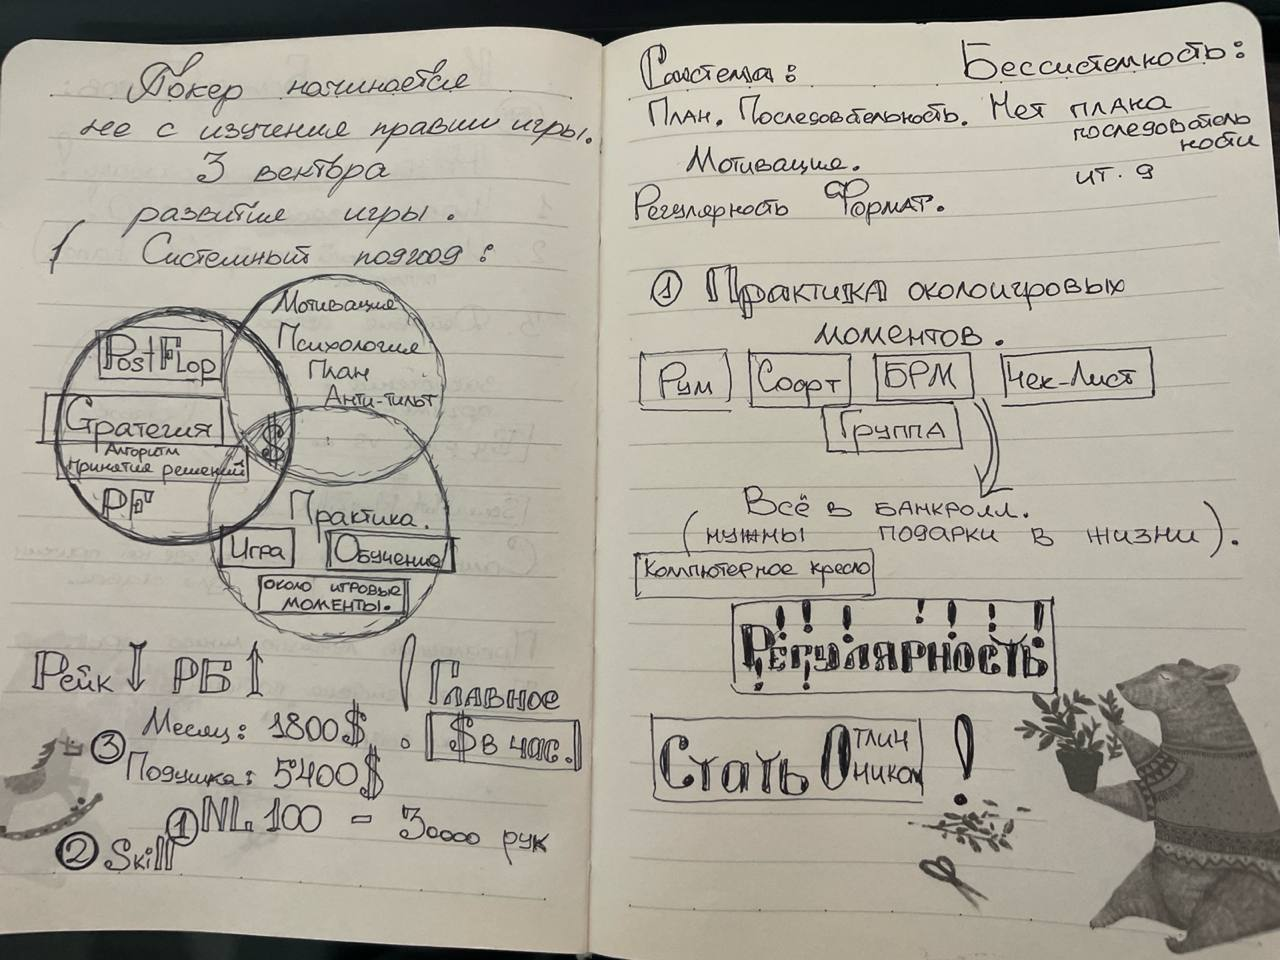 Покер начинается
не с изучения правил игры.
3 вектора
развития игры.
1 Системный подход:
Мотивация
Психология
План
Анти-тильт
PostFlop
Стратегия
Алгоритм
принятия решений
PF
$
Практика.
Игра
Обучение
около игровые
моменты.
Рейк ↓ РБ ↑
! Главное
$ в час.
Месяц: 1800$.
③ Подушка: 5400$
① NL 100 - 30000 рук
② Skill
Система:
План. Последовательность.
Мотивация.
Регулярность Формат.
Бессистемность:
Нет плана
последователь
ности
и т. д
① Практика околоигровых
моментов.
Рум Софт БРМ Чек-Лист
Группа
Всё в банкролл.
(нужны подарки в жизни).
Компютерное кресло
Регулярность
Стать Отлич
ником !